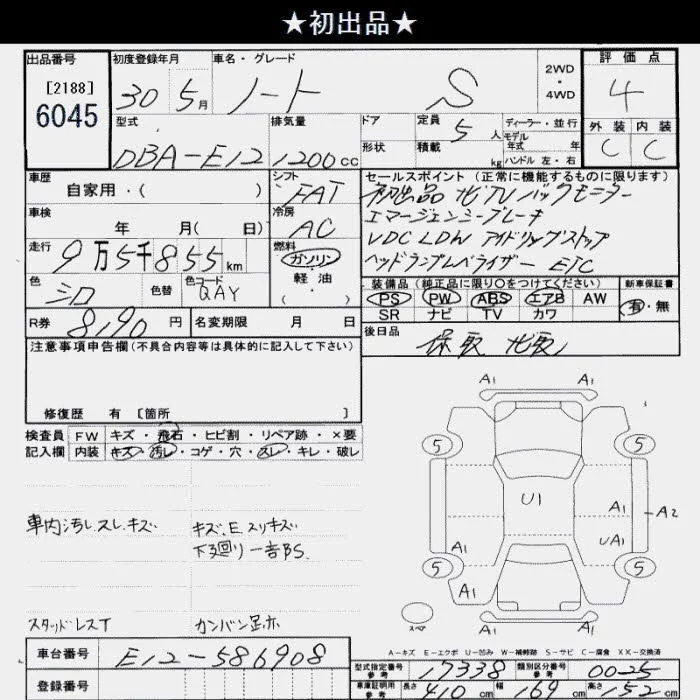 ★初出品★
出品番号 初度登録年月 車名・グレード 2WD・4WD 評価点
[2188] 6045 30 5月 ノート S 4
型式 排気量 ドア 定員 5人 ディーラー・並行 外装 内装
モデル年式 年
DBA-E12 1200cc 形状 積載 kg ハンドル 左・右 C C
車歴 シフト セールスポイント(正常に機能するものに限ります)
自家用・( ) FAT 初出品 ナビTV バックモニター
車検 冷房 エマージェンシーブレーキ
年 月( 日) AC VDC LDW アイドリングストップ
走行 燃料 ヘッドランプレベライザー ETC
9万5千855km ガソリン
軽油
・( )
色 色替 色コード 装備品(純正品に限り〇をつけてください) 新車保証書
シロ QAY PS PW ABS エアB AW 有・無
SR ナビ TV カワ
R券 8,190円 名変期限 月 日 後日品
保取 ナビ取
注意事項申告欄(不具合内容等は具体的に記入して下さい)
修復歴 有[箇所 ]
検査員 FW キズ・飛石・ヒビ割・リペア跡・×要
記入欄 内装 キズ・汚レ・コゲ・穴・スレ・キレ・破レ
A1 A1
5 5
U1
A1 A2
A1 UA1
5 5
A1
A1 A1
スペア
車内汚レ.スレ.キズ キズ、E、スリキズ
下廻り一部S
スタッドレスT カンバン
A-キズ E-エクボ U-凹み W-補修跡 S-サビ C-腐食 XX-交換済
車台番号 E12-586908
登録番号
型式指定番号 参考 17338 類別区分番号 参考 0025
車庫証明用 参考 長さ 410cm 幅 169cm 高さ 52cm